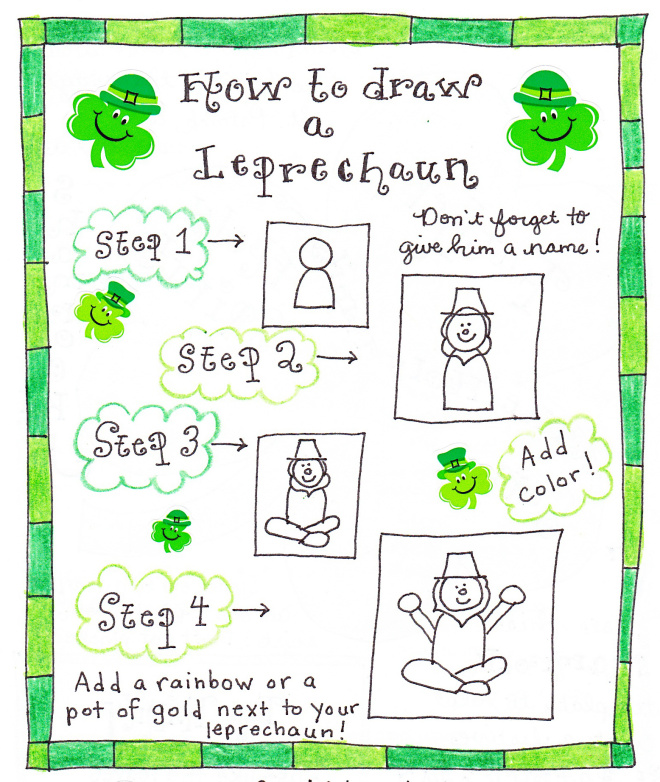 How to draw
a
Leprechaun
Step 1
Don't forget to
give him a name!
Step 2
Step 3
Add
color!
Step 4
Add a rainbow or a
pot of gold next to your
leprechaun!